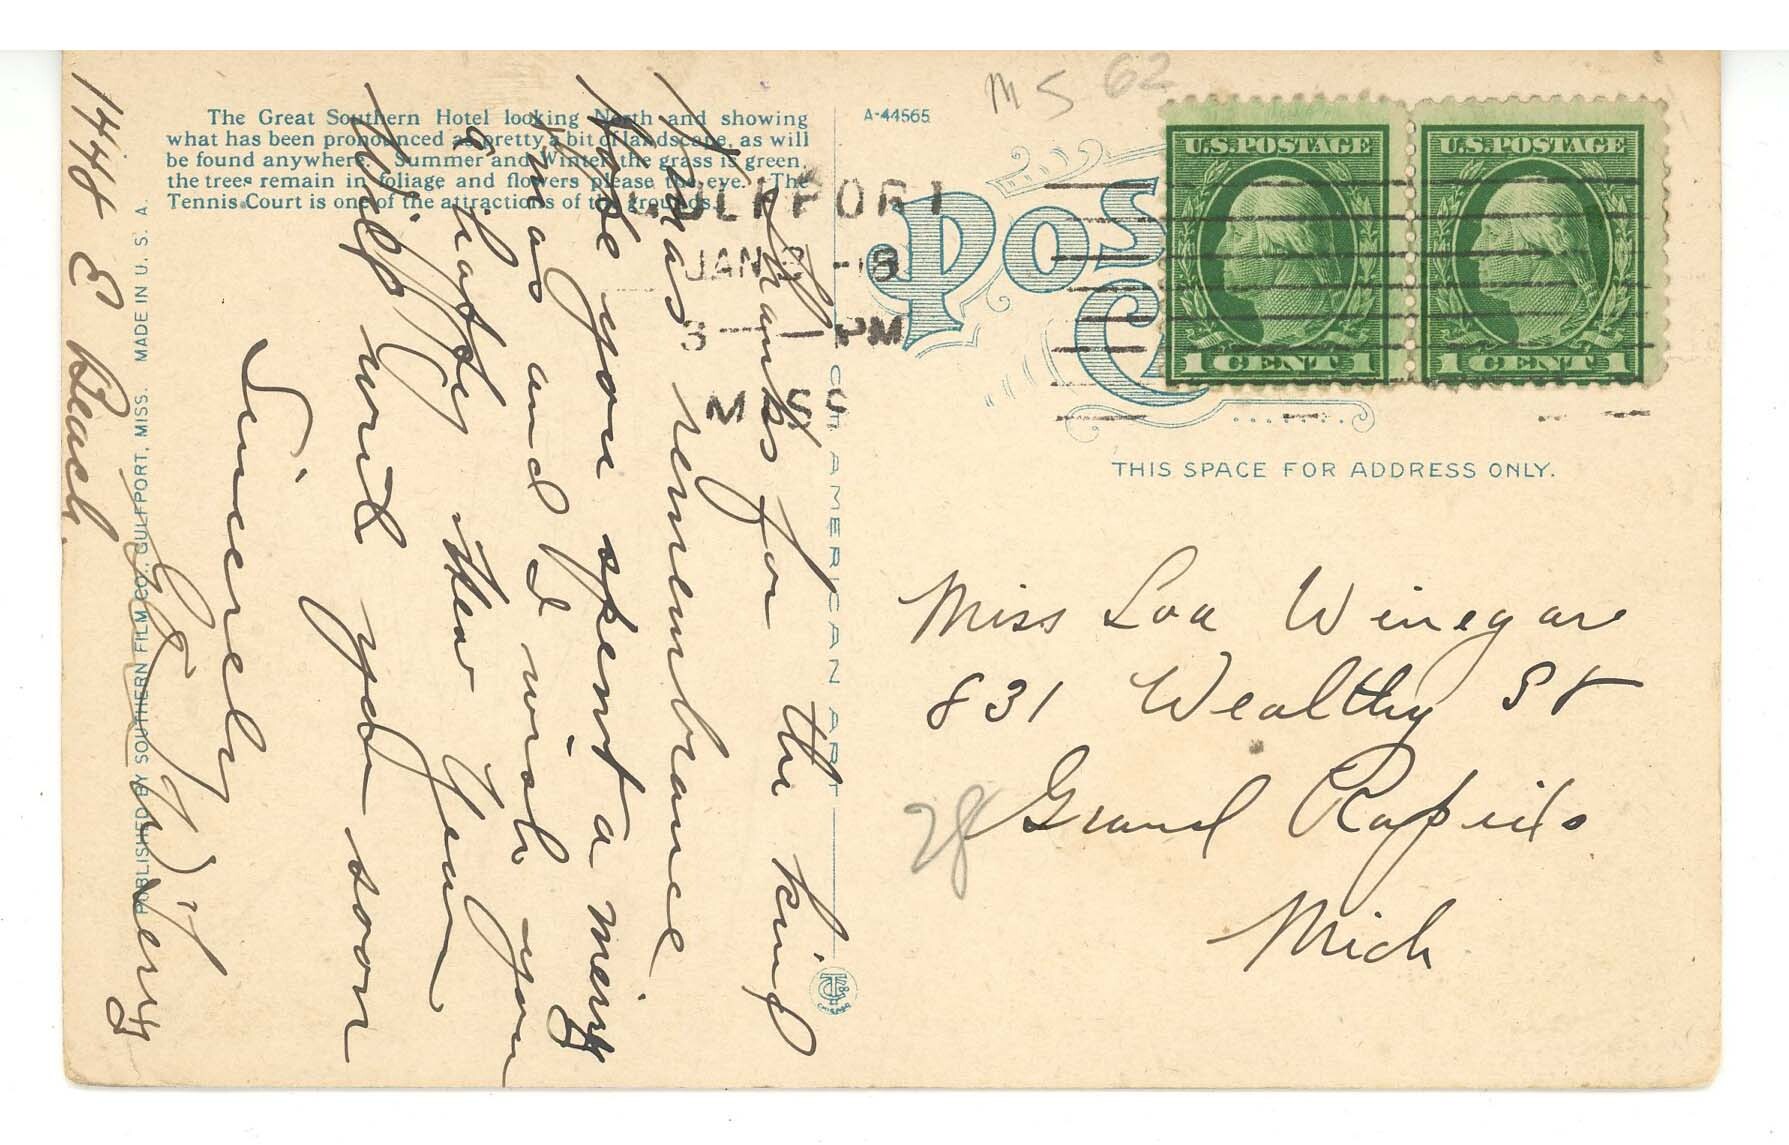 The Great Southern Hotel looking North and showing
what has been pronounced as pretty a bit of landscape, as will
be found anywhere. Summer and Winter the grass is green,
the trees remain in foliage and flowers please the eye. The
Tennis Court is one of the attractions of the grounds.
A-44565
M S 62
GULFPORT
JAN 3 -18
3 — PM
MISS
POST
U.S. POSTAGE
1 CENT 1
U.S. POSTAGE
1 CENT 1
THIS SPACE FOR ADDRESS ONLY.
Miss Loa Winegar
831 Wealthy St
Grand Rapids
Mich
28
C.T. AMERICAN ART
Thanks for the kind
Xmas remembrance
Hope you spent a merry
Xmas and I wish you
a happy New Year
Will write you soon
Sincerely
1448 E Beach.
PUBLISHED BY SOUTHERN FILM CO., GULFPORT, MISS. MADE IN U. S. A.